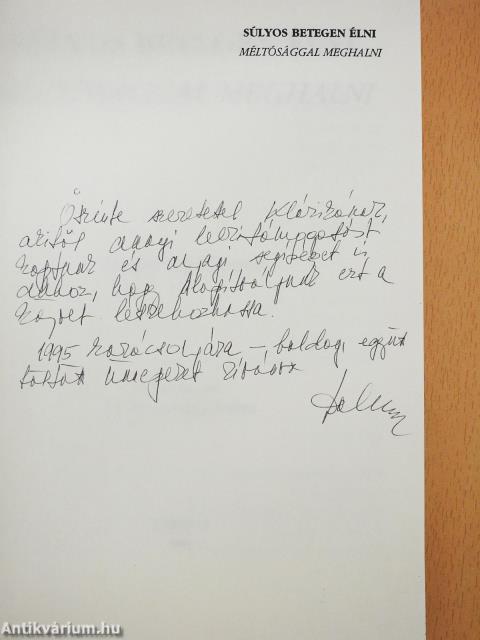 SÚLYOS BETEGEN ÉLNI
MÉLTÓSÁGGAL MEGHALNI
Őszinte szeretetel Klárikának,
akitől annyi lelkitámogatást
kaptunk és anyagi segítséget is
ahhoz, hogy Alapítványunk ezt a
könyvet létrehozhassa.
1995 karácsonyára – boldog együtt
töltött ünnepeket kívánva
Antikvárium.hu